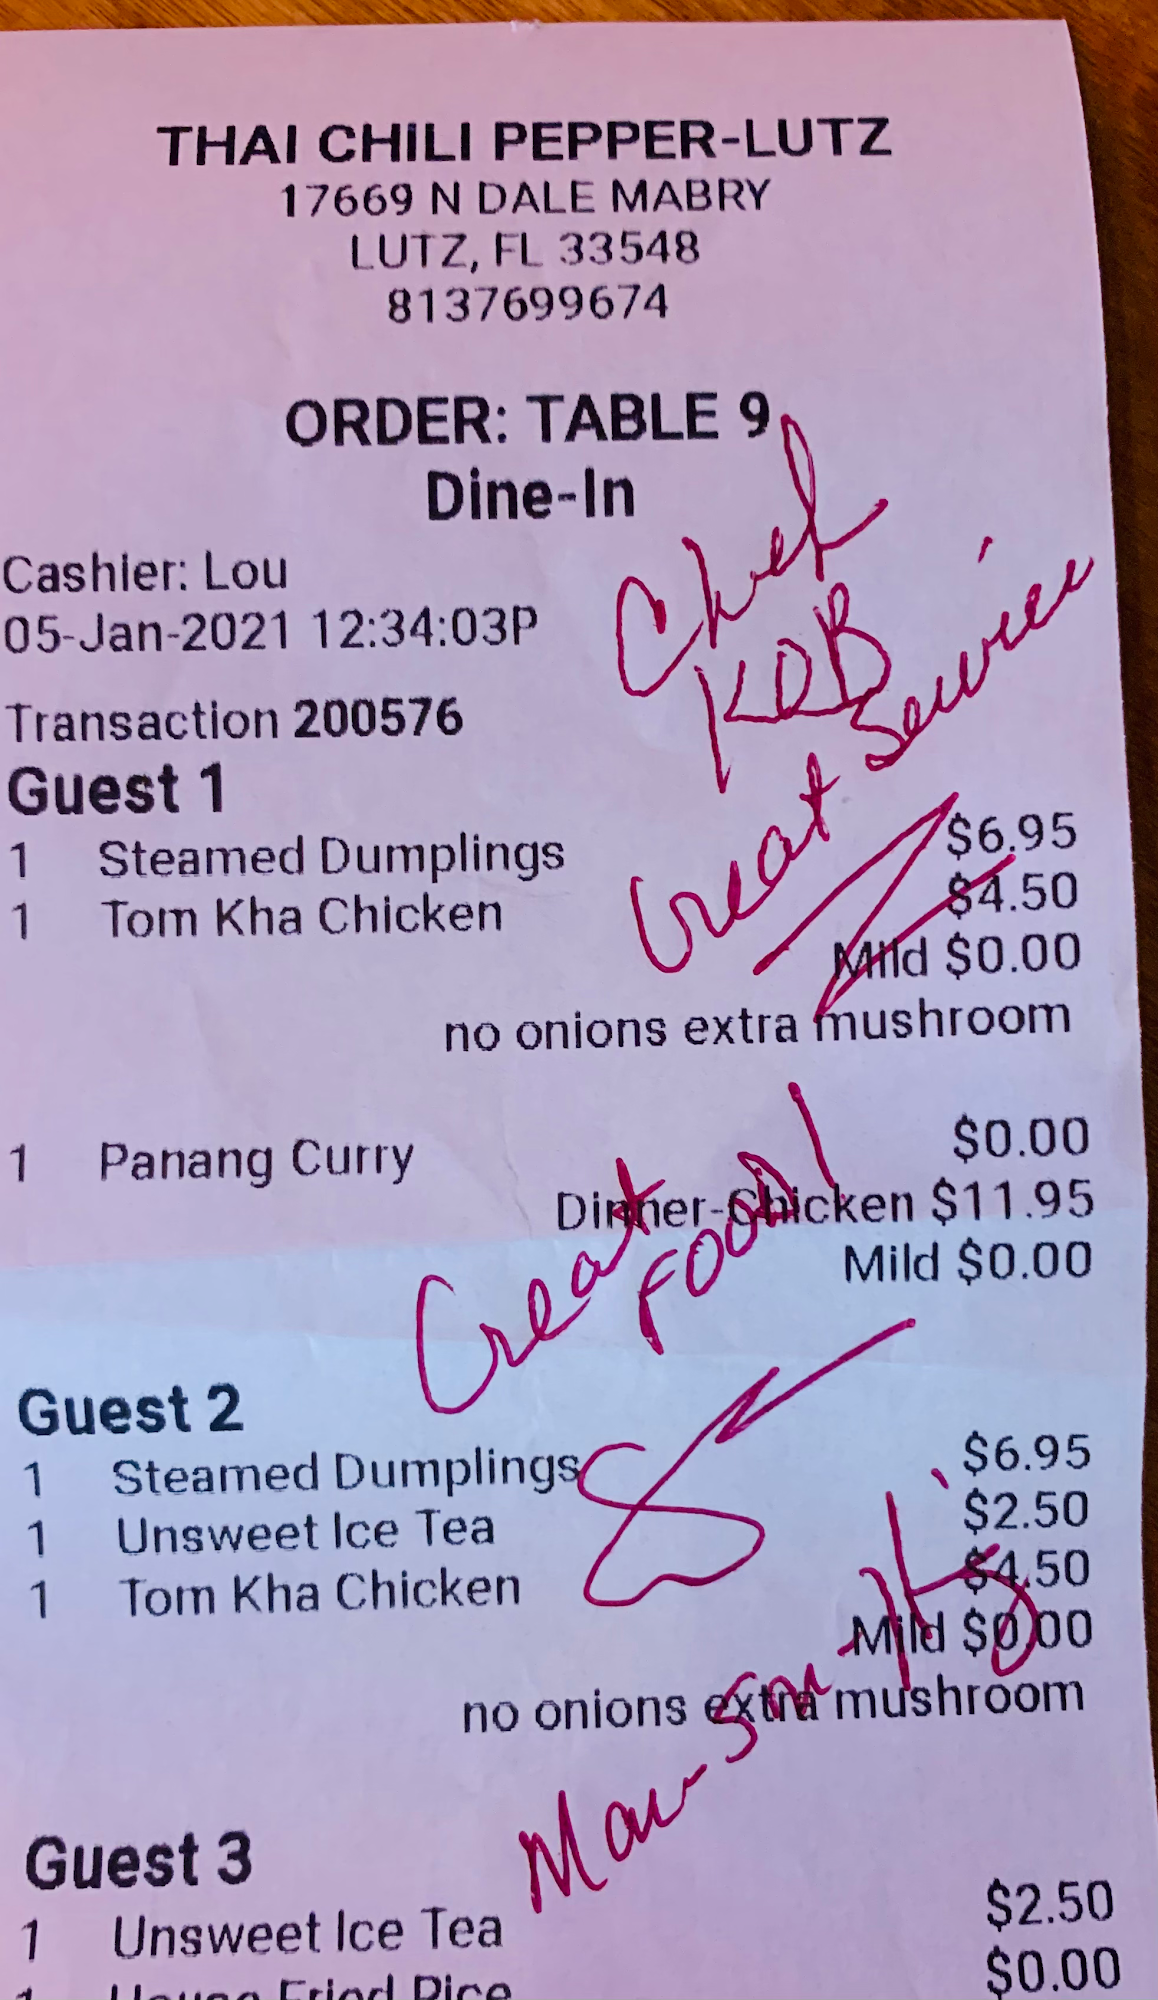 THAI CHILI PEPPER-LUTZ
17669 N DALE MABRY
LUTZ, FL 33548
8137699674
ORDER: TABLE 9
Dine-In
Cashier: Lou
05-Jan-2021 12:34:03P
Chef
KOB
Great Service
Transaction 200576
Guest 1
1 Steamed Dumplings $6.95
1 Tom Kha Chicken $4.50
Mild $0.00
no onions extra mushroom
1 Panang Curry $0.00
Dinner-Chicken $11.95
Mild $0.00
Great
FOOD!
Guest 2
1 Steamed Dumplings $6.95
1 Unsweet Ice Tea $2.50
1 Tom Kha Chicken $4.50
Mild $0.00
no onions extra mushroom
Guest 3
1 Unsweet Ice Tea $2.50
1 House Fried Rice $0.00